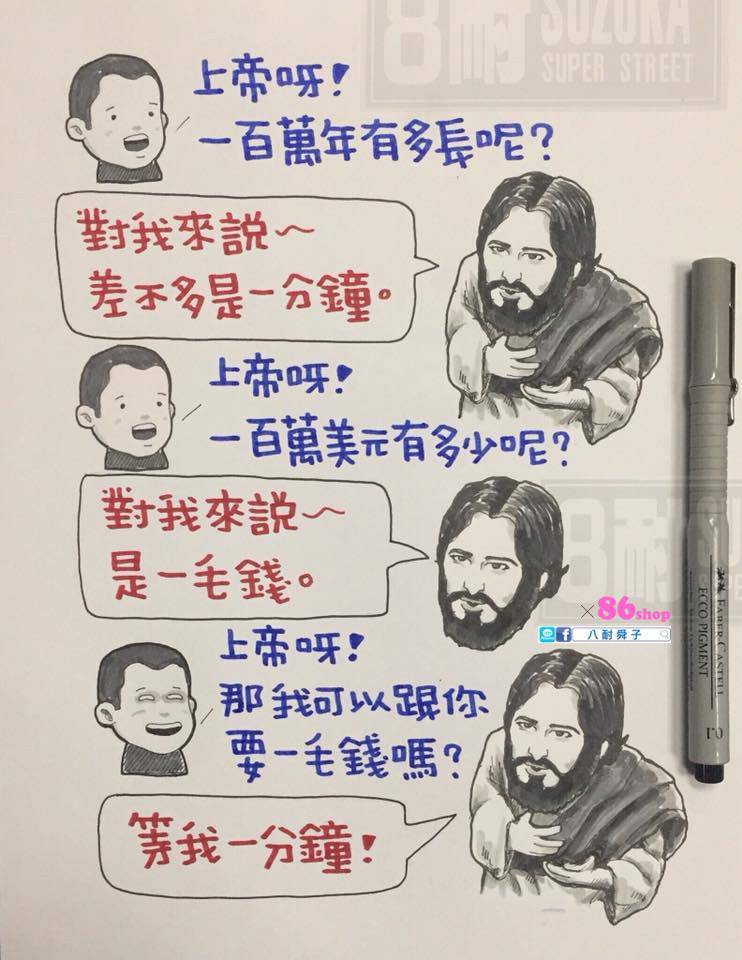 8耐 SUZUKA
SUPER STREET
上帝呀!
一百萬年有多長呢?
對我來説~
差不多是一分鐘。
上帝呀!
一百萬美元有多少呢?
對我來説~
是一毛錢。
8耐
×86shop
八耐舜子
上帝呀!
那我可以跟你
要一毛錢嗎?
等我一分鐘!
FABER-CASTELL
ECCO PIGMENT
0.1